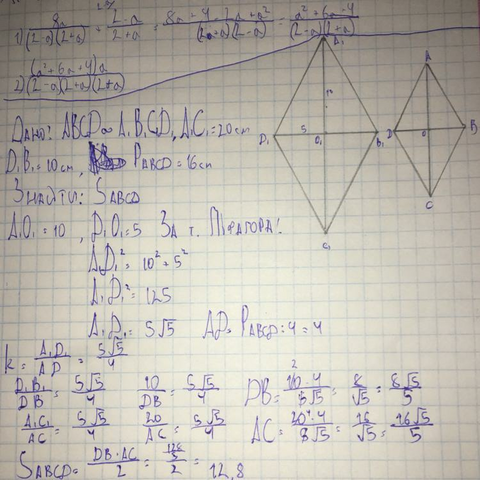 1) 8a/(2-a)(2+a) + 2-a/2+a = 8a+4-2a+a²/(2+a)(2-a) = a²+6a+4/(2-a)(2+a)
2) (a²+6a+4)a/(2-a)(2+a)(2+a)
Дано: ABCD∞A₁B₁C₁D₁, A₁C₁=20см
D₁B₁=10см, P_ABCD=16см
Знайти: S_ABCD
A₁O₁=10, D₁O₁=5 За т. Піфагора:
A₁D₁²=10²+5²
A₁D₁²=125
A₁D₁=5√5 AD=P_ABCD:4=4
k=A₁D₁/AD=5√5/4
D₁B₁/DB=5√5/4 10/DB=5√5/4 DB=10·4/5√5=8/√5=8√5/5
A₁C₁/AC=5√5/4 20/AC=5√5/4 AC=20·4/5√5=16/√5=16√5/5
S_ABCD=DB·AC/2=128/5/2=12,8
A₁
D₁
5
O₁
B₁
C₁
A
D
o
B
C